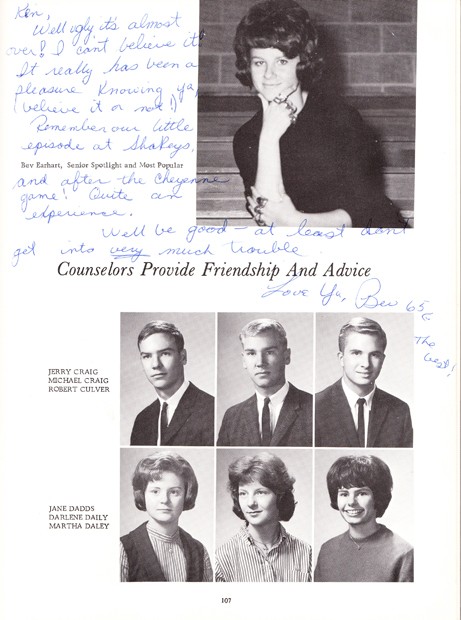 Ken,
Well ugly it's almost
over! I can't believe it!
It really has been a
pleasure knowing ya,
(believe it or not!)
Remember our little
episode at Shakeys,
Bev Earhart, Senior Spotlight and Most Popular
and after the Cheyenne
game! Quite an
experience.
Well be good - at least don't
get into very much trouble.
Counselors Provide Friendship And Advice
Love Ya, Bev 65
The
best!
JERRY CRAIG
MICHAEL CRAIG
ROBERT CULVER
JANE DADDS
DARLENE DAILY
MARTHA DALEY
107